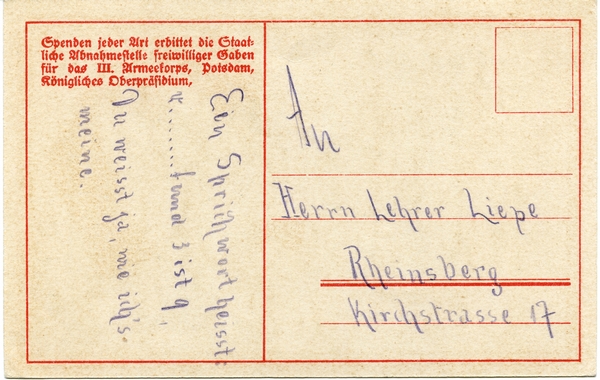 Spenden jeder Art erbittet die Staat-
liche Abnahmestelle freiwilliger Gaben
für das III. Armeekorps, Potsdam,
Königliches Oberpräsidium,
Ein Sprichwort heisst:
u........ und 3 ist 9,
Du weisst ja, wie ich's
meine.
An
Herrn Lehrer Liepe
Rheinsberg
Kirchstrasse 17